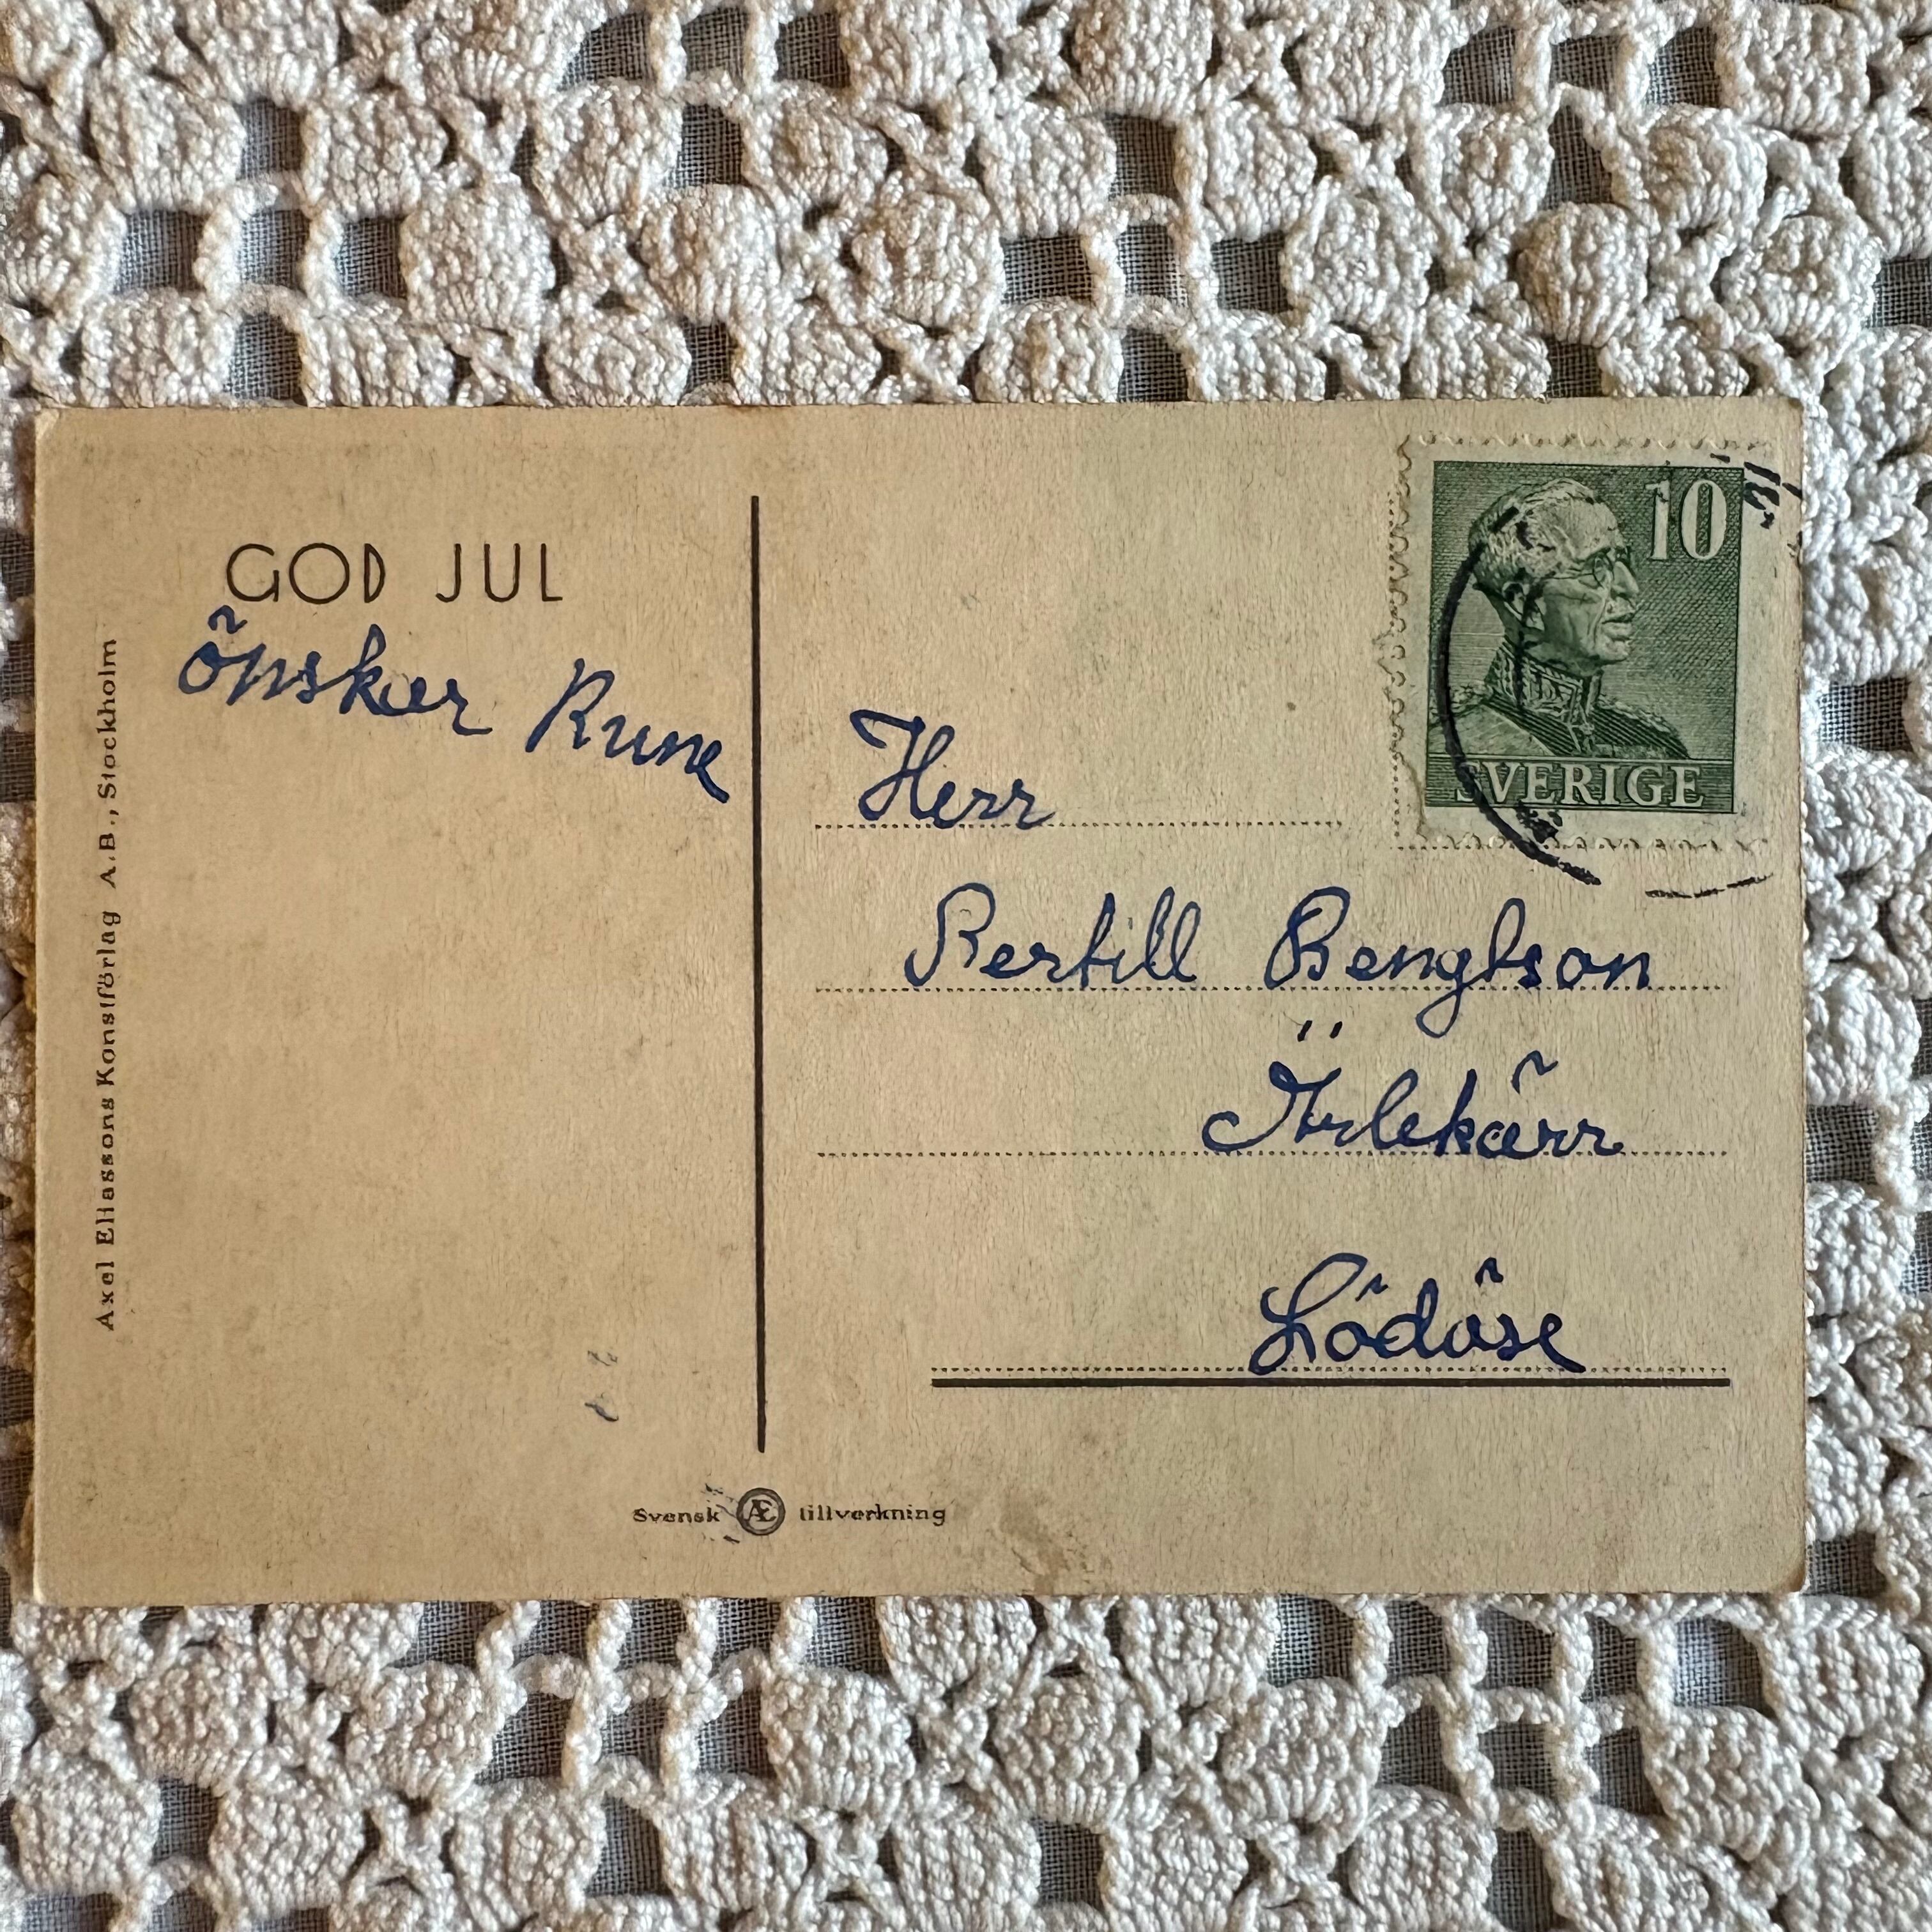 GOD JUL
önskar Rune
Axel Eliassons Konstförlag A.B., Stockholm
10
SVERIGE
Herr
Bertill Bengtson
Ärlekärr
Lödöse
Svensk Æ tillverkning